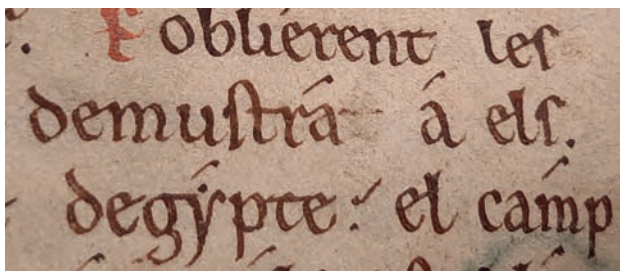 E oblierent les
demustrá á els.
degypte. el camp